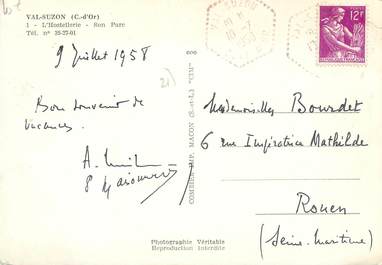 VAL-SUZON (C.-d'Or)
1 - L'Hostellerie - Son Parc
Tél. n° 35-27-01
9 Juillet 1958
Bon souvenir de
vacances.
A.
8
COMBIER IMP. MACON (S.-et-L.) "CIM"
Photographie Véritable
Reproduction Interdite
12F
Mesdemoiselles Bourdet
6 rue Impératrice Mathilde
Rouen
(Seine-Maritime)